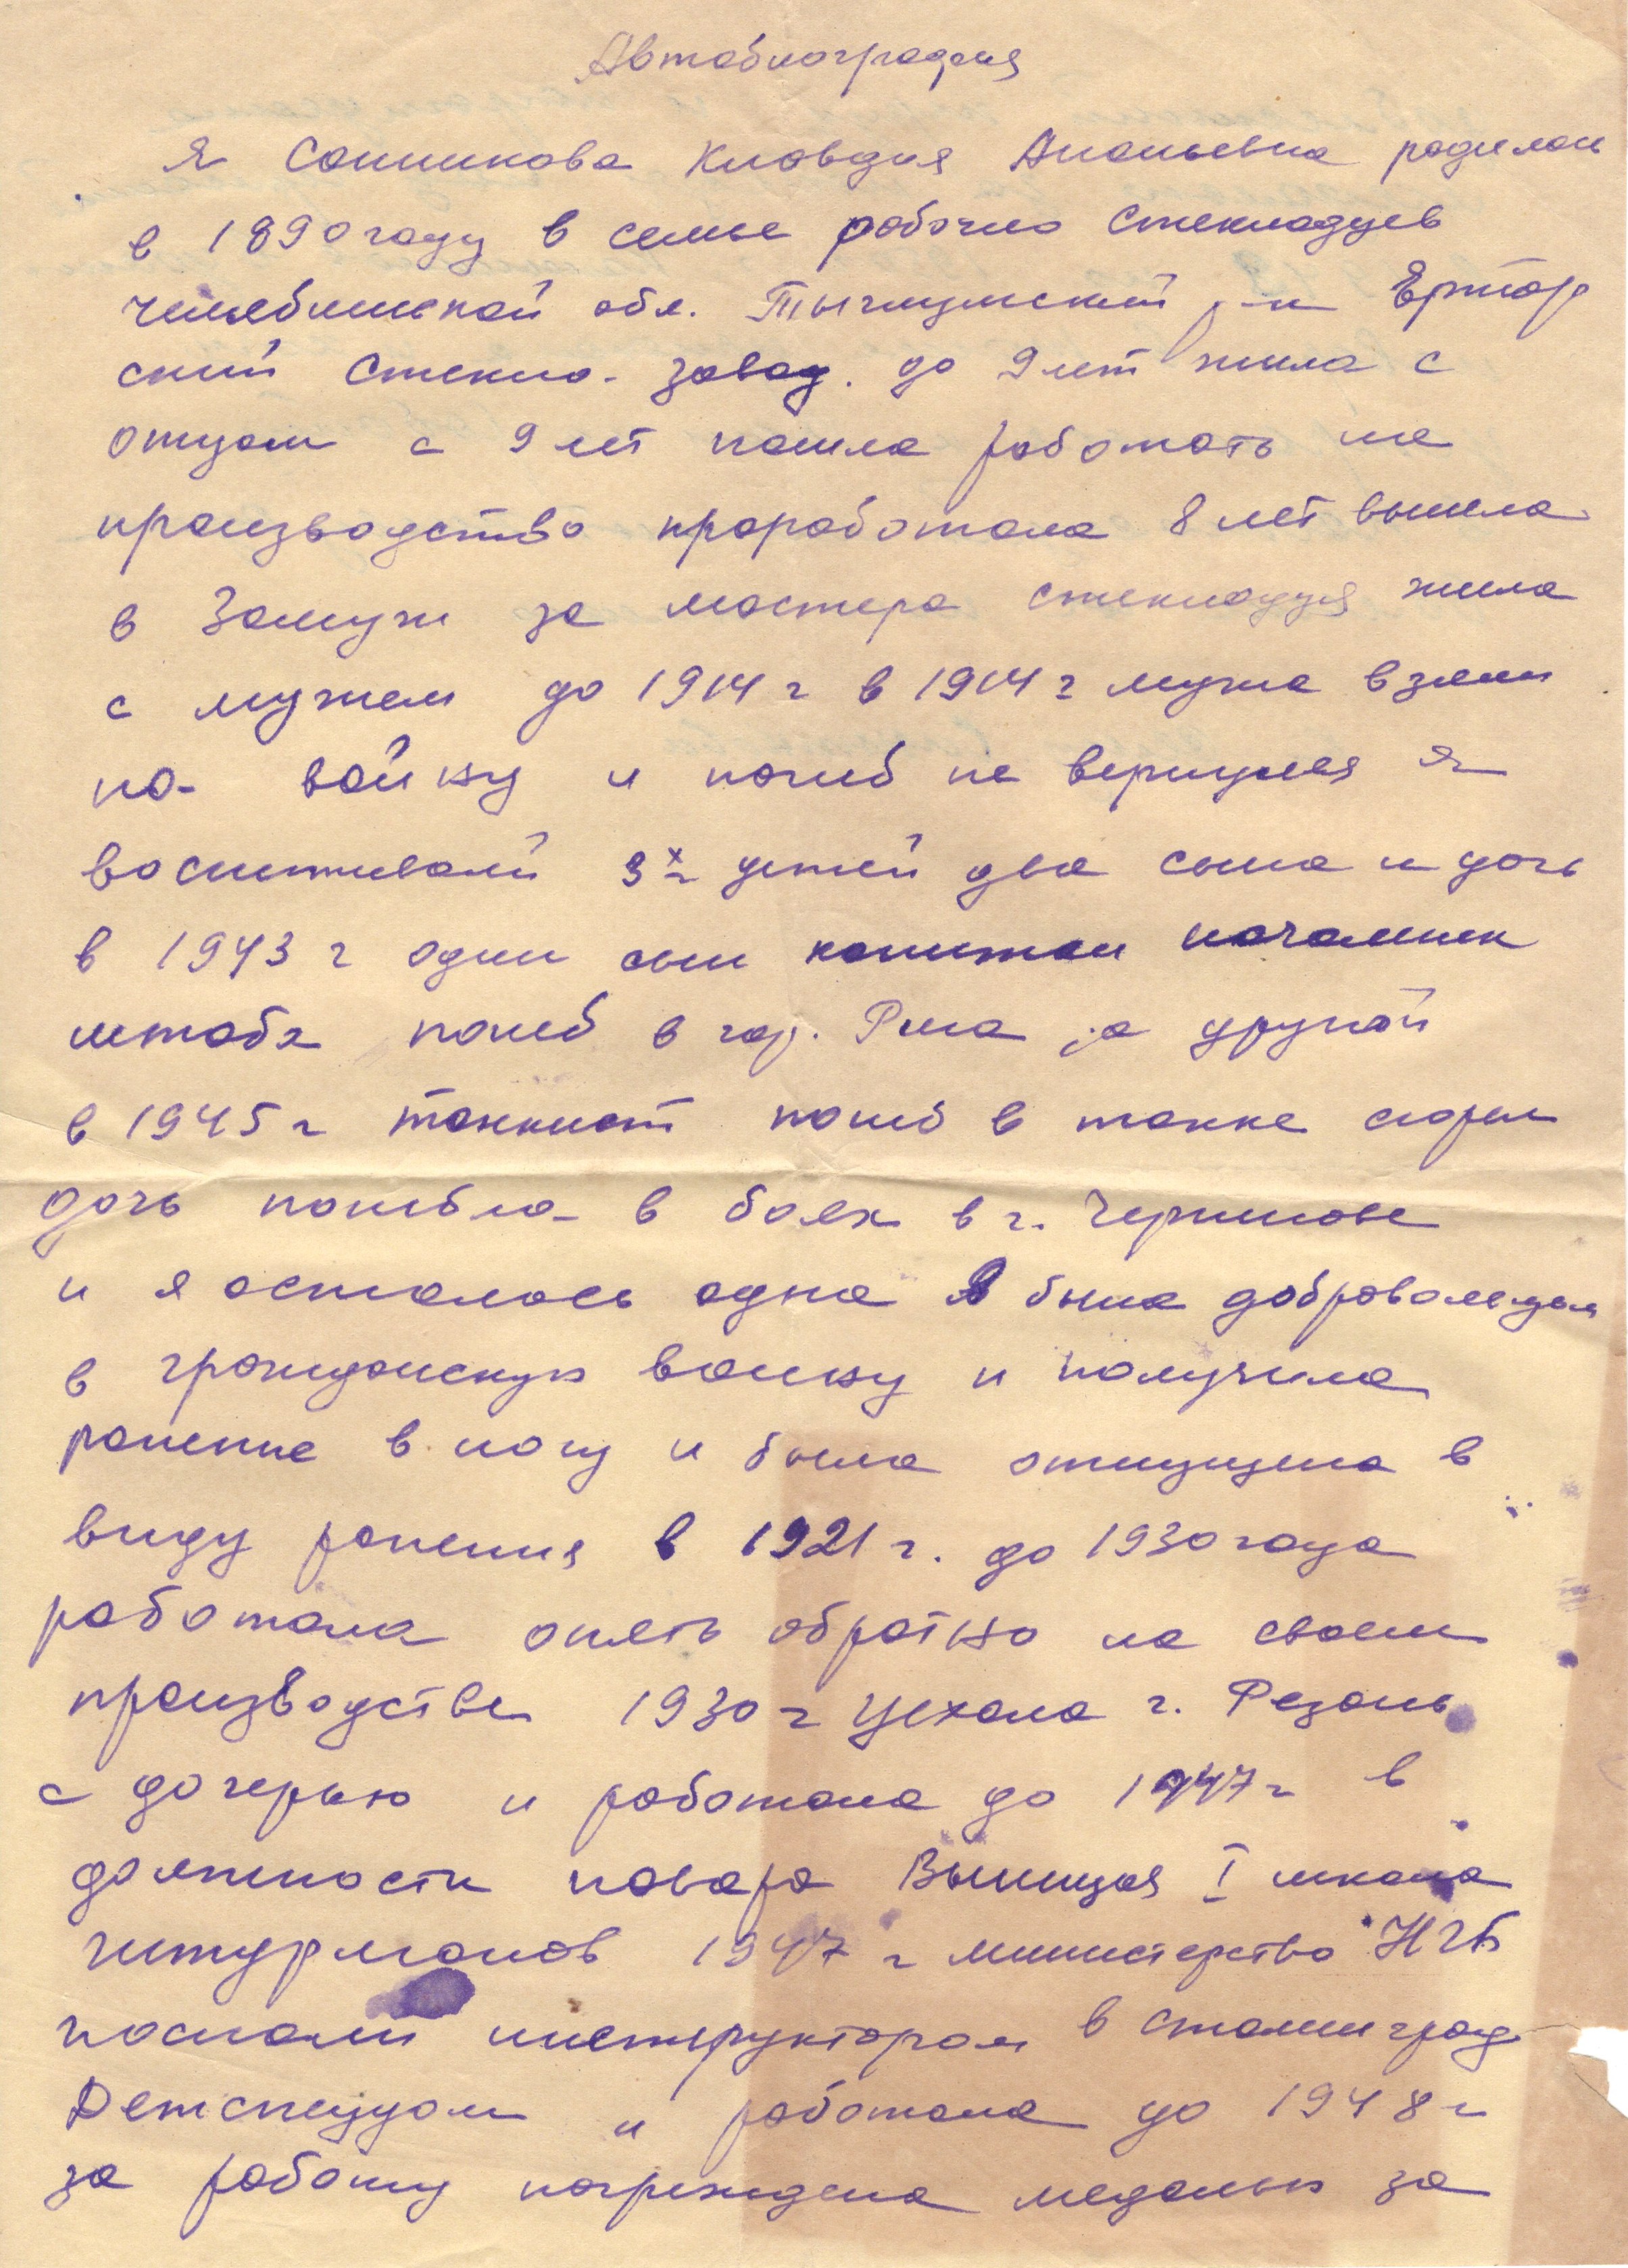 Автобиография
Я Санникова Клавдия Ананьевна родилась
в 1890 году в семье рабочих стекладуев
челябинской обл. Талицкий р-н Ертар
ский стекло-завод. до 9 лет жила с
отцом с 9 лет пошла работать на
производство проработала 8 лет вышла
в замуж за мастера стекладуя жила
с мужем до 1914 г в 1914 г мужа взяли
на войну и погиб не вернулся я
воспитывали 3х детей два сына и дочь
в 1943 г один сын капитан начальник
штаба погиб в гор. Рига, а другой
в 1945 г танкист погиб в танке сгорел
дочь погибла в боях в г. Чернигове
и я осталась одна Я была добровольцем
в гражданскую войну и получила
ранение в ногу и была отпущена в
виду ранения в 1921 г. до 1930 года
работала опять обратно на своем
производстве 1930 г уехала г. Резань
с дочерью и работала до 1947 г в
должности повара Высшая I школа
штурманов 1947 г министерство
послали инструктором в сталинград
Детспецдом и работала до 1948 г
за работу награждена медалью за